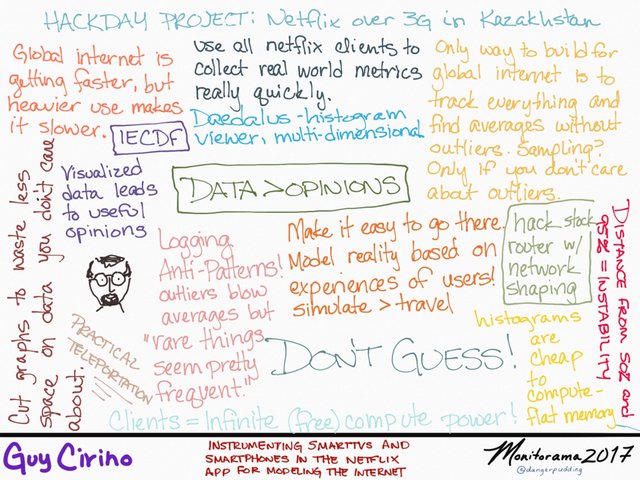 HACKDAY PROJECT: Netflix over 3G in Kazakhstan
Global internet is
getting faster, but
heavier use makes
it slower.
use all netflix clients to
collect real world metrics
really quickly.
Daedalus - histogram
viewer, multi-dimensional
Only way to build for
global internet is to
track everything and
find averages without
outliers. Sampling?
Only if you don't care
about outliers.
IECDF
Visualized
data leads
to useful
opinions
DATA > OPINIONS
Cut graphs to waste less
space on data you don't care
about.
Logging
Anti-Patterns!
outliers blow
averages but
"rare things
seem pretty
frequent."
Make it easy to go there.
Model reality based on
experiences of users!
simulate > travel
hack stock
router w/
network
shaping
DISTANCE FROM 50% and
95% = INSTABILITY
PRACTICAL
TELEPORTATION
DON'T GUESS!
histograms
are
cheap
to
compute-
flat memory
Clients = Infinite (free) compute power!
Guy Cirino
INSTRUMENTING SMARTTVS AND
SMARTPHONES IN THE NETFLIX
APP FOR MODELING THE INTERNET
Monitorama 2017
@dangerpudding